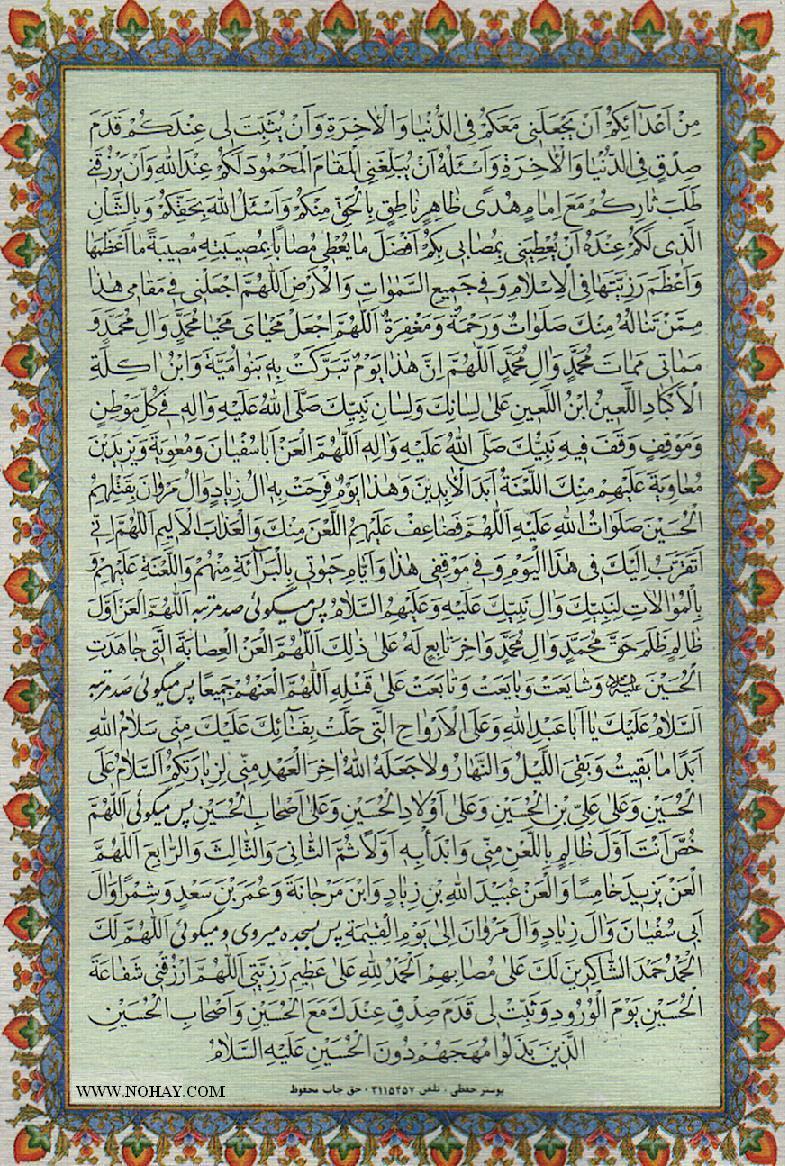 مِنْ اَعْدآئِكُمْ اَنْ يَجْعَلَنى مَعَكُمْ فِى الدُّنْيا وَالْاخِرَةِ وَاَنْ يُثَبِّتَ لى عِنْدَكُمْ قَدَمَ
صِدْقٍ فِى الدُّنْيا وَالْاخِرَةِ وَاَسْئَلُهُ اَنْ يُبَلِّغَنِى الْمَقامَ الْمَحْمُودَ لَكُمْ عِنْدَ اللهِ وَاَنْ يَرْزُقَنى
طَلَبَ ثارِكُمْ مَعَ اِمامٍ هُدًى ظاهِرٍ ناطِقٍ بِالْحَقِّ مِنْكُمْ وَاَسْئَلُ اللهَ بِحَقِّكُمْ وَبِالشَّاْنِ
الَّذى لَكُمْ عِنْدَهُ اَنْ يُعْطِيَنى بِمُصابى بِكُمْ اَفْضَلَ ما يُعْطى مُصاباً بِمُصيبَتِهِ مُصيبَةً ما اَعْظَمَها
وَاَعْظَمَ رَزِيَّتَها فِى الْاِسْلامِ وَفى جَميعِ السَّمٰواتِ وَالْاَرْضِ اَللّهُمَّ اجْعَلْنى فى مَقامى هٰذا
مِمَّنْ تَنالُهُ مِنْكَ صَلَواتٌ وَرَحْمَةٌ وَمَغْفِرَةٌ اَللّهُمَّ اجْعَلْ مَحْياىَ مَحْيا مُحَمَّدٍ وَالِ مُحَمَّدٍ وَ
مَماتى مَماتَ مُحَمَّدٍ وَالِ مُحَمَّدٍ اَللّهُمَّ اِنَّ هٰذا يَوْمٌ تَبَرَّكَتْ بِهِ بَنُو اُمَيَّةَ وَابْنُ اكِلَةِ
الْاَكْبادِ اللَّعينُ ابْنُ اللَّعينِ عَلى لِسانِكَ وَلِسانِ نَبِيِّكَ صَلَّى اللهُ عَلَيْهِ وَالِهِ فى كُلِّ مَوْطِنٍ
وَمَوْقِفٍ وَقَفَ فيهِ نَبِيُّكَ صَلَّى اللهُ عَلَيْهِ وَالِهِ اَللّهُمَّ الْعَنْ اَباسُفْيانَ وَمُعٰوِيَةَ وَيَزيدَ بْنَ
مُعاوِيَةَ عَلَيْهِمْ مِنْكَ اللَّعْنَةُ اَبَدَ الْابِدينَ وَهٰذا يَوْمٌ فَرِحَتْ بِهِ الُ زِيادٍ وَالُ مَرْوانَ بِقَتْلِهِمُ
الْحُسَيْنَ صَلَواتُ اللهِ عَلَيْهِ اَللّهُمَّ فَضاعِفْ عَلَيْهِمُ اللَّعْنَ مِنْكَ وَالْعَذابَ الْاَليمَ اَللّهُمَّ اِنّى
اَتَقَرَّبُ اِلَيْكَ فى هٰذَا الْيَوْمِ وَفى مَوْقِفى هٰذا وَاَيّامِ حَيوتى بِالْبَرآئَةِ مِنْهُمْ وَاللَّعْنَةِ عَلَيْهِمْ وَ
بِالْمُوالاتِ لِنَبِيِّكَ وَالِ نَبِيِّكَ عَلَيْهِ وَعَلَيْهِمُ السَّلامُ پس ميگوئى صد مرتبه اَللّهُمَّ الْعَنْ اَوَّلَ
ظالِمٍ ظَلَمَ حَقَّ مُحَمَّدٍ وَالِ مُحَمَّدٍ وَاخِرَ تابِعٍ لَهُ عَلى ذٰلِكَ اَللّهُمَّ الْعَنِ الْعِصابَةَ الَّتى جاهَدَتِ
الْحُسَيْنَ عليه السلام وَشايَعَتْ وَبايَعَتْ وَتابَعَتْ عَلى قَتْلِهِ اَللّهُمَّ الْعَنْهُمْ جَميعًا پس ميگوئى صد مرتبه
اَلسَّلامُ عَلَيْكَ يا اَبا عَبْدِ اللهِ وَعَلَى الْاَرْواحِ الَّتى حَلَّتْ بِفَنآئِكَ عَلَيْكَ مِنّى سَلامُ اللهِ
اَبَدًا ما بَقيتُ وَبَقِىَ اللَّيْلُ وَالنَّهارُ وَلا جَعَلَهُ اللهُ اخِرَ الْعَهْدِ مِنّى لِزِيارَتِكُمْ اَلسَّلامُ عَلَى
الْحُسَيْنِ وَعَلى عَلِىِّ بْنِ الْحُسَيْنِ وَعَلى اَوْلادِ الْحُسَيْنِ وَعَلى اَصْحابِ الْحُسَيْنِ پس ميگوئى اَللّهُمَّ
خُصَّ اَنْتَ اَوَّلَ ظالِمٍ بِاللَّعْنِ مِنّى وَابْدَأْ بِهِ اَوَّلًا ثُمَّ الثّانِىَ وَالثّالِثَ وَالرّابِعَ اَللّهُمَّ
الْعَنْ يَزيدَ خامِسًا وَالْعَنْ عُبَيْدَ اللهِ بْنَ زِيادٍ وَابْنَ مَرْجانَةَ وَعُمَرَ بْنَ سَعْدٍ وَشِمْرًا وَالَ
اَبى سُفْيانَ وَالَ زِيادٍ وَالَ مَرْوانَ اِلى يَوْمِ الْقِيٰمَةِ پس بسجده ميروى و ميگوئى اَللّهُمَّ لَكَ
الْحَمْدُ حَمْدَ الشّاكِرينَ لَكَ عَلى مُصابِهِمْ اَلْحَمْدُ لِلّهِ عَلى عَظيمِ رَزِيَّتى اَللّهُمَّ ارْزُقْنى شَفاعَةَ
الْحُسَيْنِ يَوْمَ الْوُرُودِ وَثَبِّتْ لى قَدَمَ صِدْقٍ عِنْدَكَ مَعَ الْحُسَيْنِ وَاَصْحابِ الْحُسَيْنِ
الَّذينَ بَذَلُوا مُهَجَهُمْ دُونَ الْحُسَيْنِ عَلَيْهِ السَّلامُ
پوستر حفظی ، تلفن ۳۱۱۵۲۵۲ ، حق چاپ محفوظ
WWW.NOHAY.COM